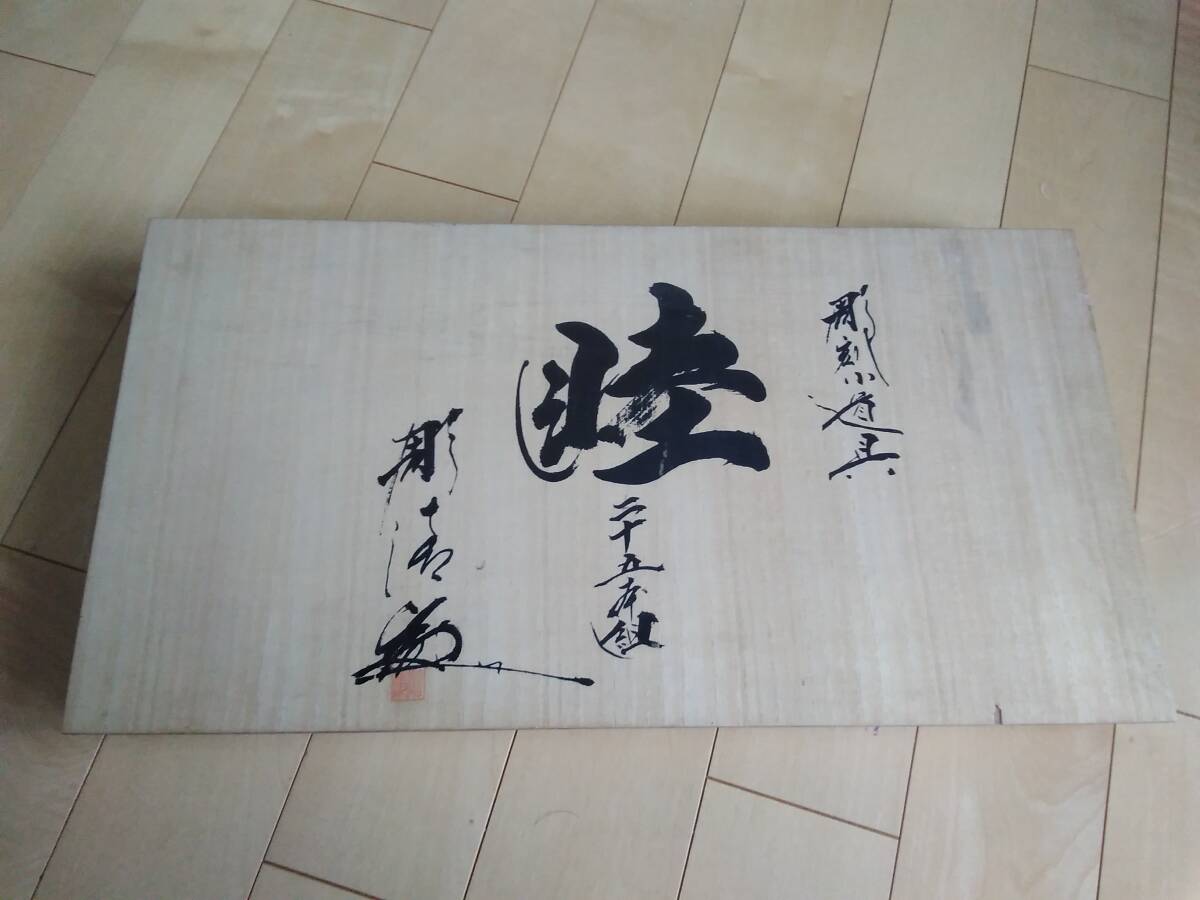 彫刻小道具
睦
二十五本組
彫清